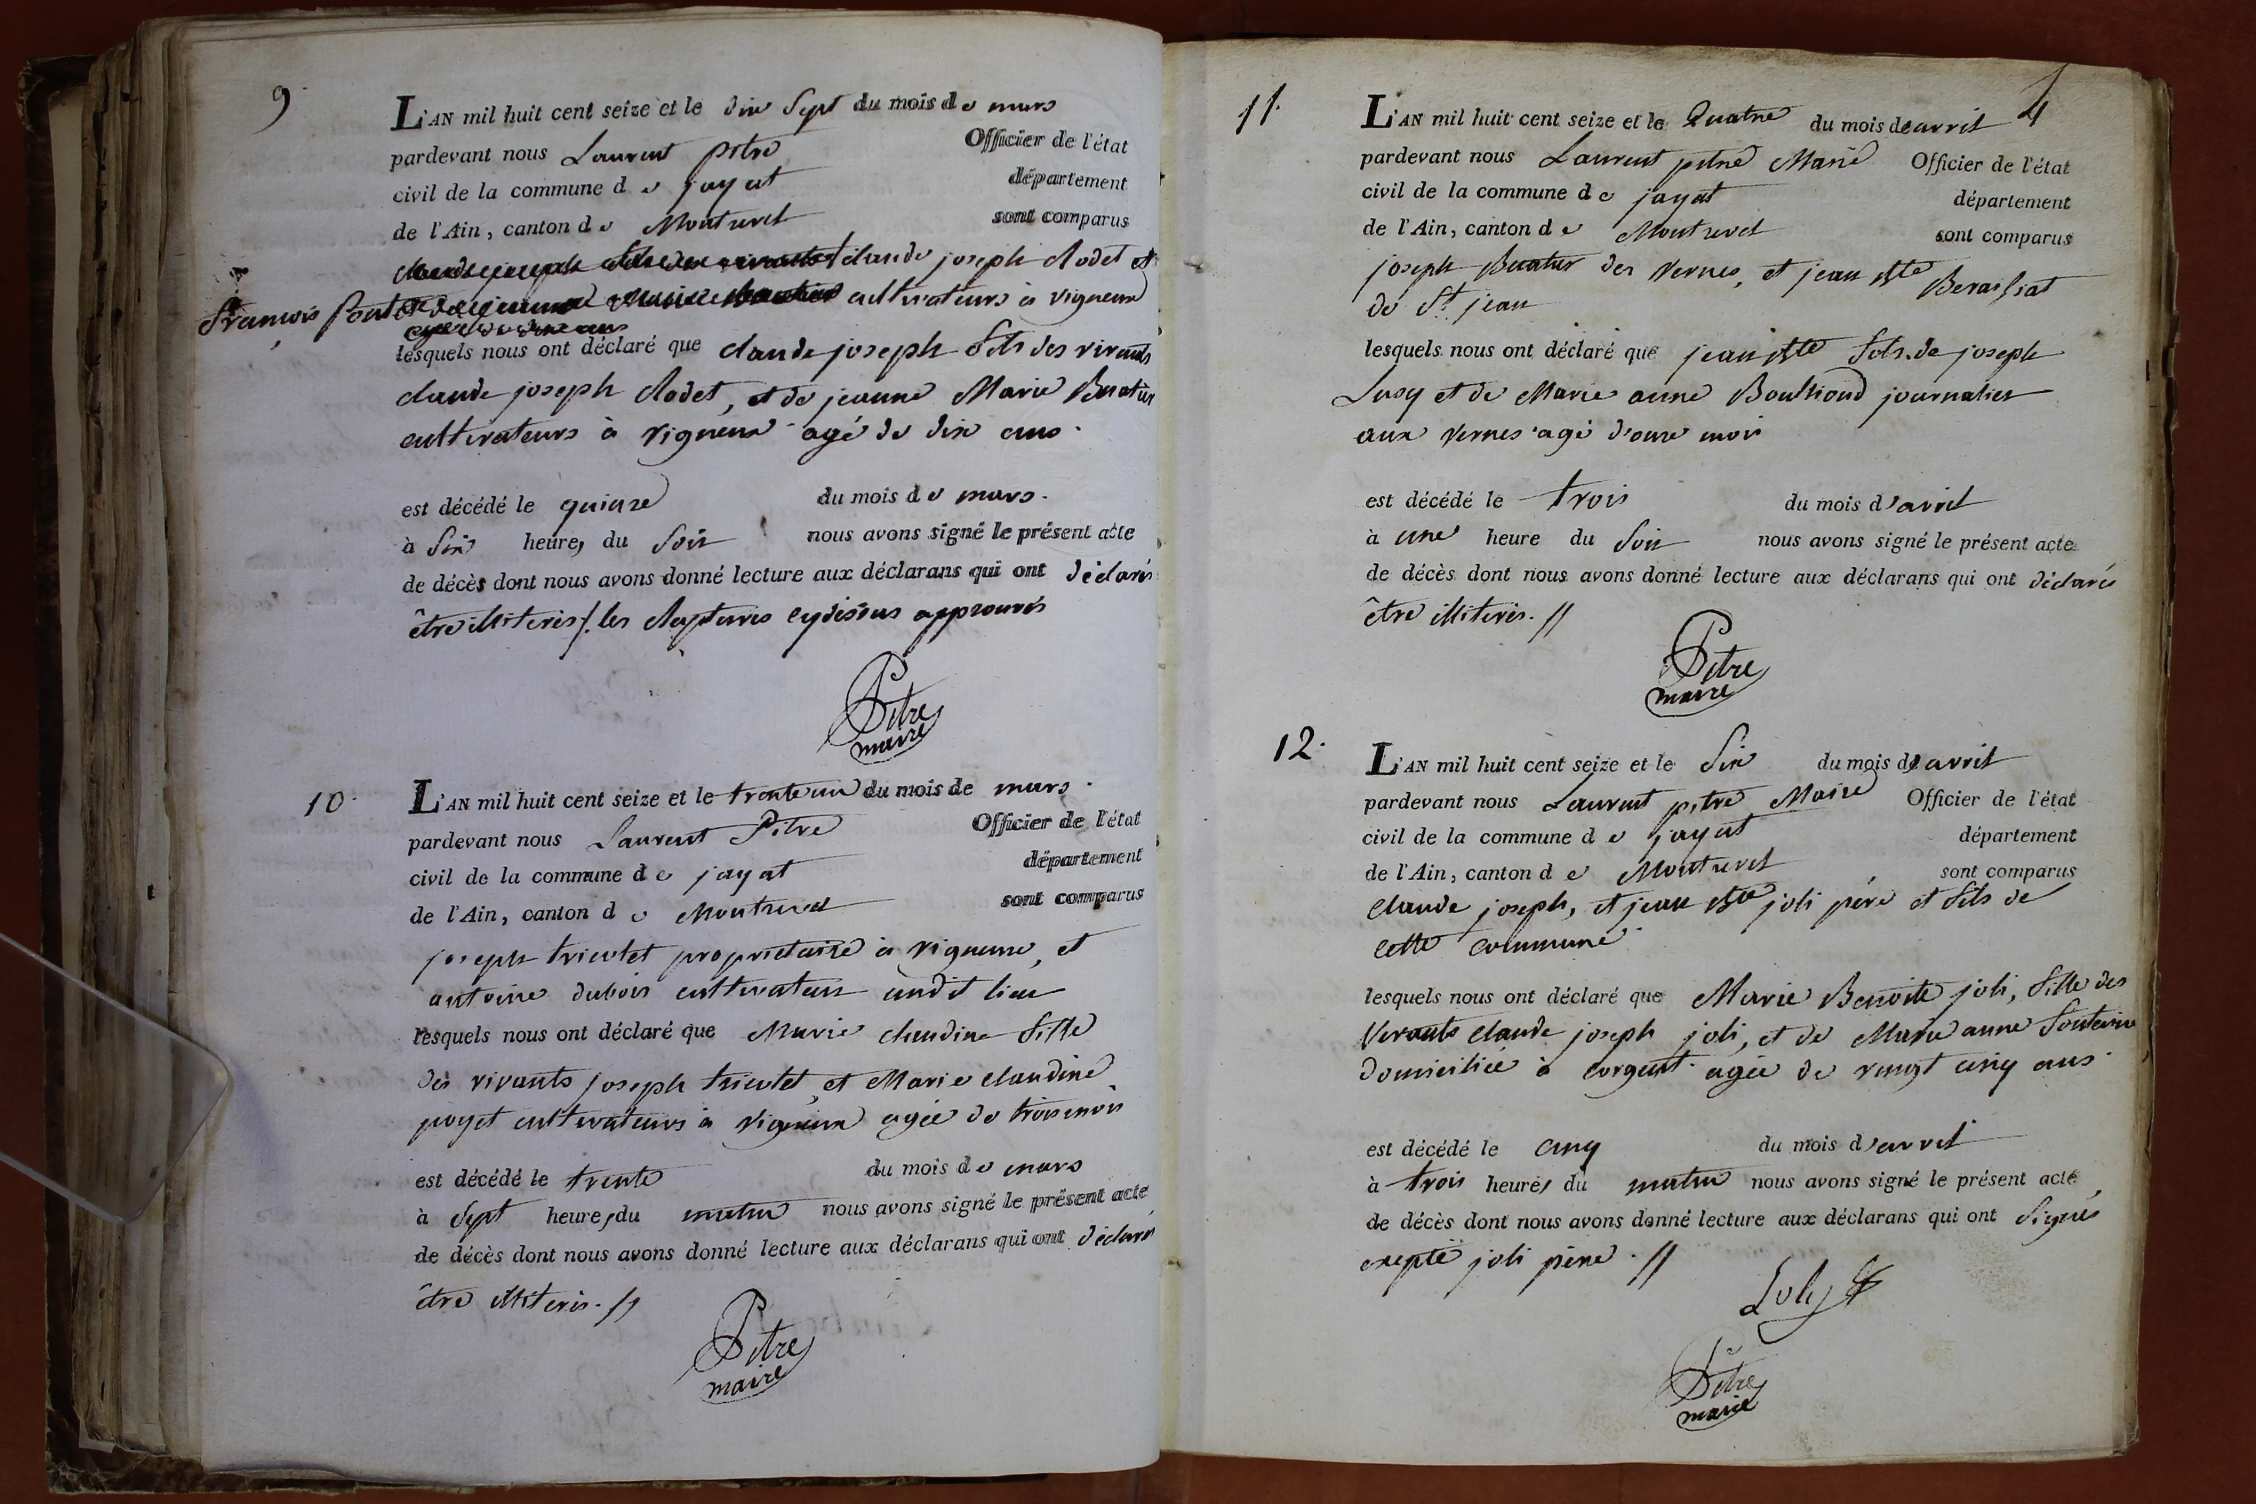 9.
L'AN mil huit cent seize et le dix Sept du mois de mars
pardevant nous Laurent pitre Officier de l'état
civil de la commune de jayat département
de l'Ain, canton de Montrevel sont comparus
claude joseph Clodet et
françois cultivateurs à vigneux
lesquels nous ont déclaré que claude joseph fils des vivants
claude joseph Clodet, et de jeanne Marie Buatier
cultivateurs à vigneux agé de dix ans.
est décédé le quinze du mois de mars.
à six heures du soir nous avons signé le présent acte
de décès dont nous avons donné lecture aux déclarans qui ont déclarés
être illiterés /. les approuvés
Pitre
maire
10.
L'AN mil huit cent seize et le trente un du mois de mars.
pardevant nous Laurent Pitre Officier de l'état
civil de la commune de jayat département
de l'Ain, canton de Montrevel sont comparus
joseph tricotet proprietaire à vigneux, et
antoine dubois cultivateur audit lieu
lesquels nous ont déclaré que Marie claudine fille
des vivants joseph tricotet, et Marie claudine
poyet cultivateurs à vigneux agée de trois mois
est décédé le trente du mois de mars
à sept heures du matin nous avons signé le présent acte
de décès dont nous avons donné lecture aux déclarans qui ont déclarés
être illiterés. //
Pitre
maire
4
11.
L'AN mil huit cent seize et le Quatre du mois de avril
pardevant nous Laurent pitre Maire Officier de l'état
civil de la commune de jayat département
de l'Ain, canton de Montrevel sont comparus
joseph Buatier des vernes, et jean Bte Beraissiat
de St jean
lesquels nous ont déclaré que jean Bte fils de joseph
Lusy et de Marie anne journalier
aux vernes agé d'onze mois
est décédé le trois du mois d'avril
à une heure du soir nous avons signé le présent acte
de décès dont nous avons donné lecture aux déclarans qui ont déclarés
être illiterés. //
Pitre
maire
12.
L'AN mil huit cent seize et le six du mois de avril
pardevant nous Laurent pitre Maire Officier de l'état
civil de la commune de jayat département
de l'Ain, canton de Montrevel sont comparus
claude joseph, et jean Bte joli père et fils de
cette commune.
lesquels nous ont déclaré que Marie Benoite joli, fille des
vivants claude joseph joli, et de Marie anne fontaine
domiciliée à corgent agée de vingt cinq ans.
est décédé le cinq du mois d'avril
à trois heures du matin nous avons signé le présent acte
de décès dont nous avons donné lecture aux déclarans qui ont signés
exepté joli père. //
Joly
Pitre
maire